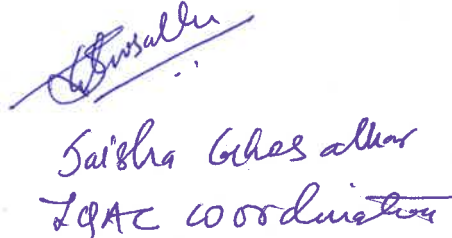 Saisha Ghosalkar
IQAC Coordinator